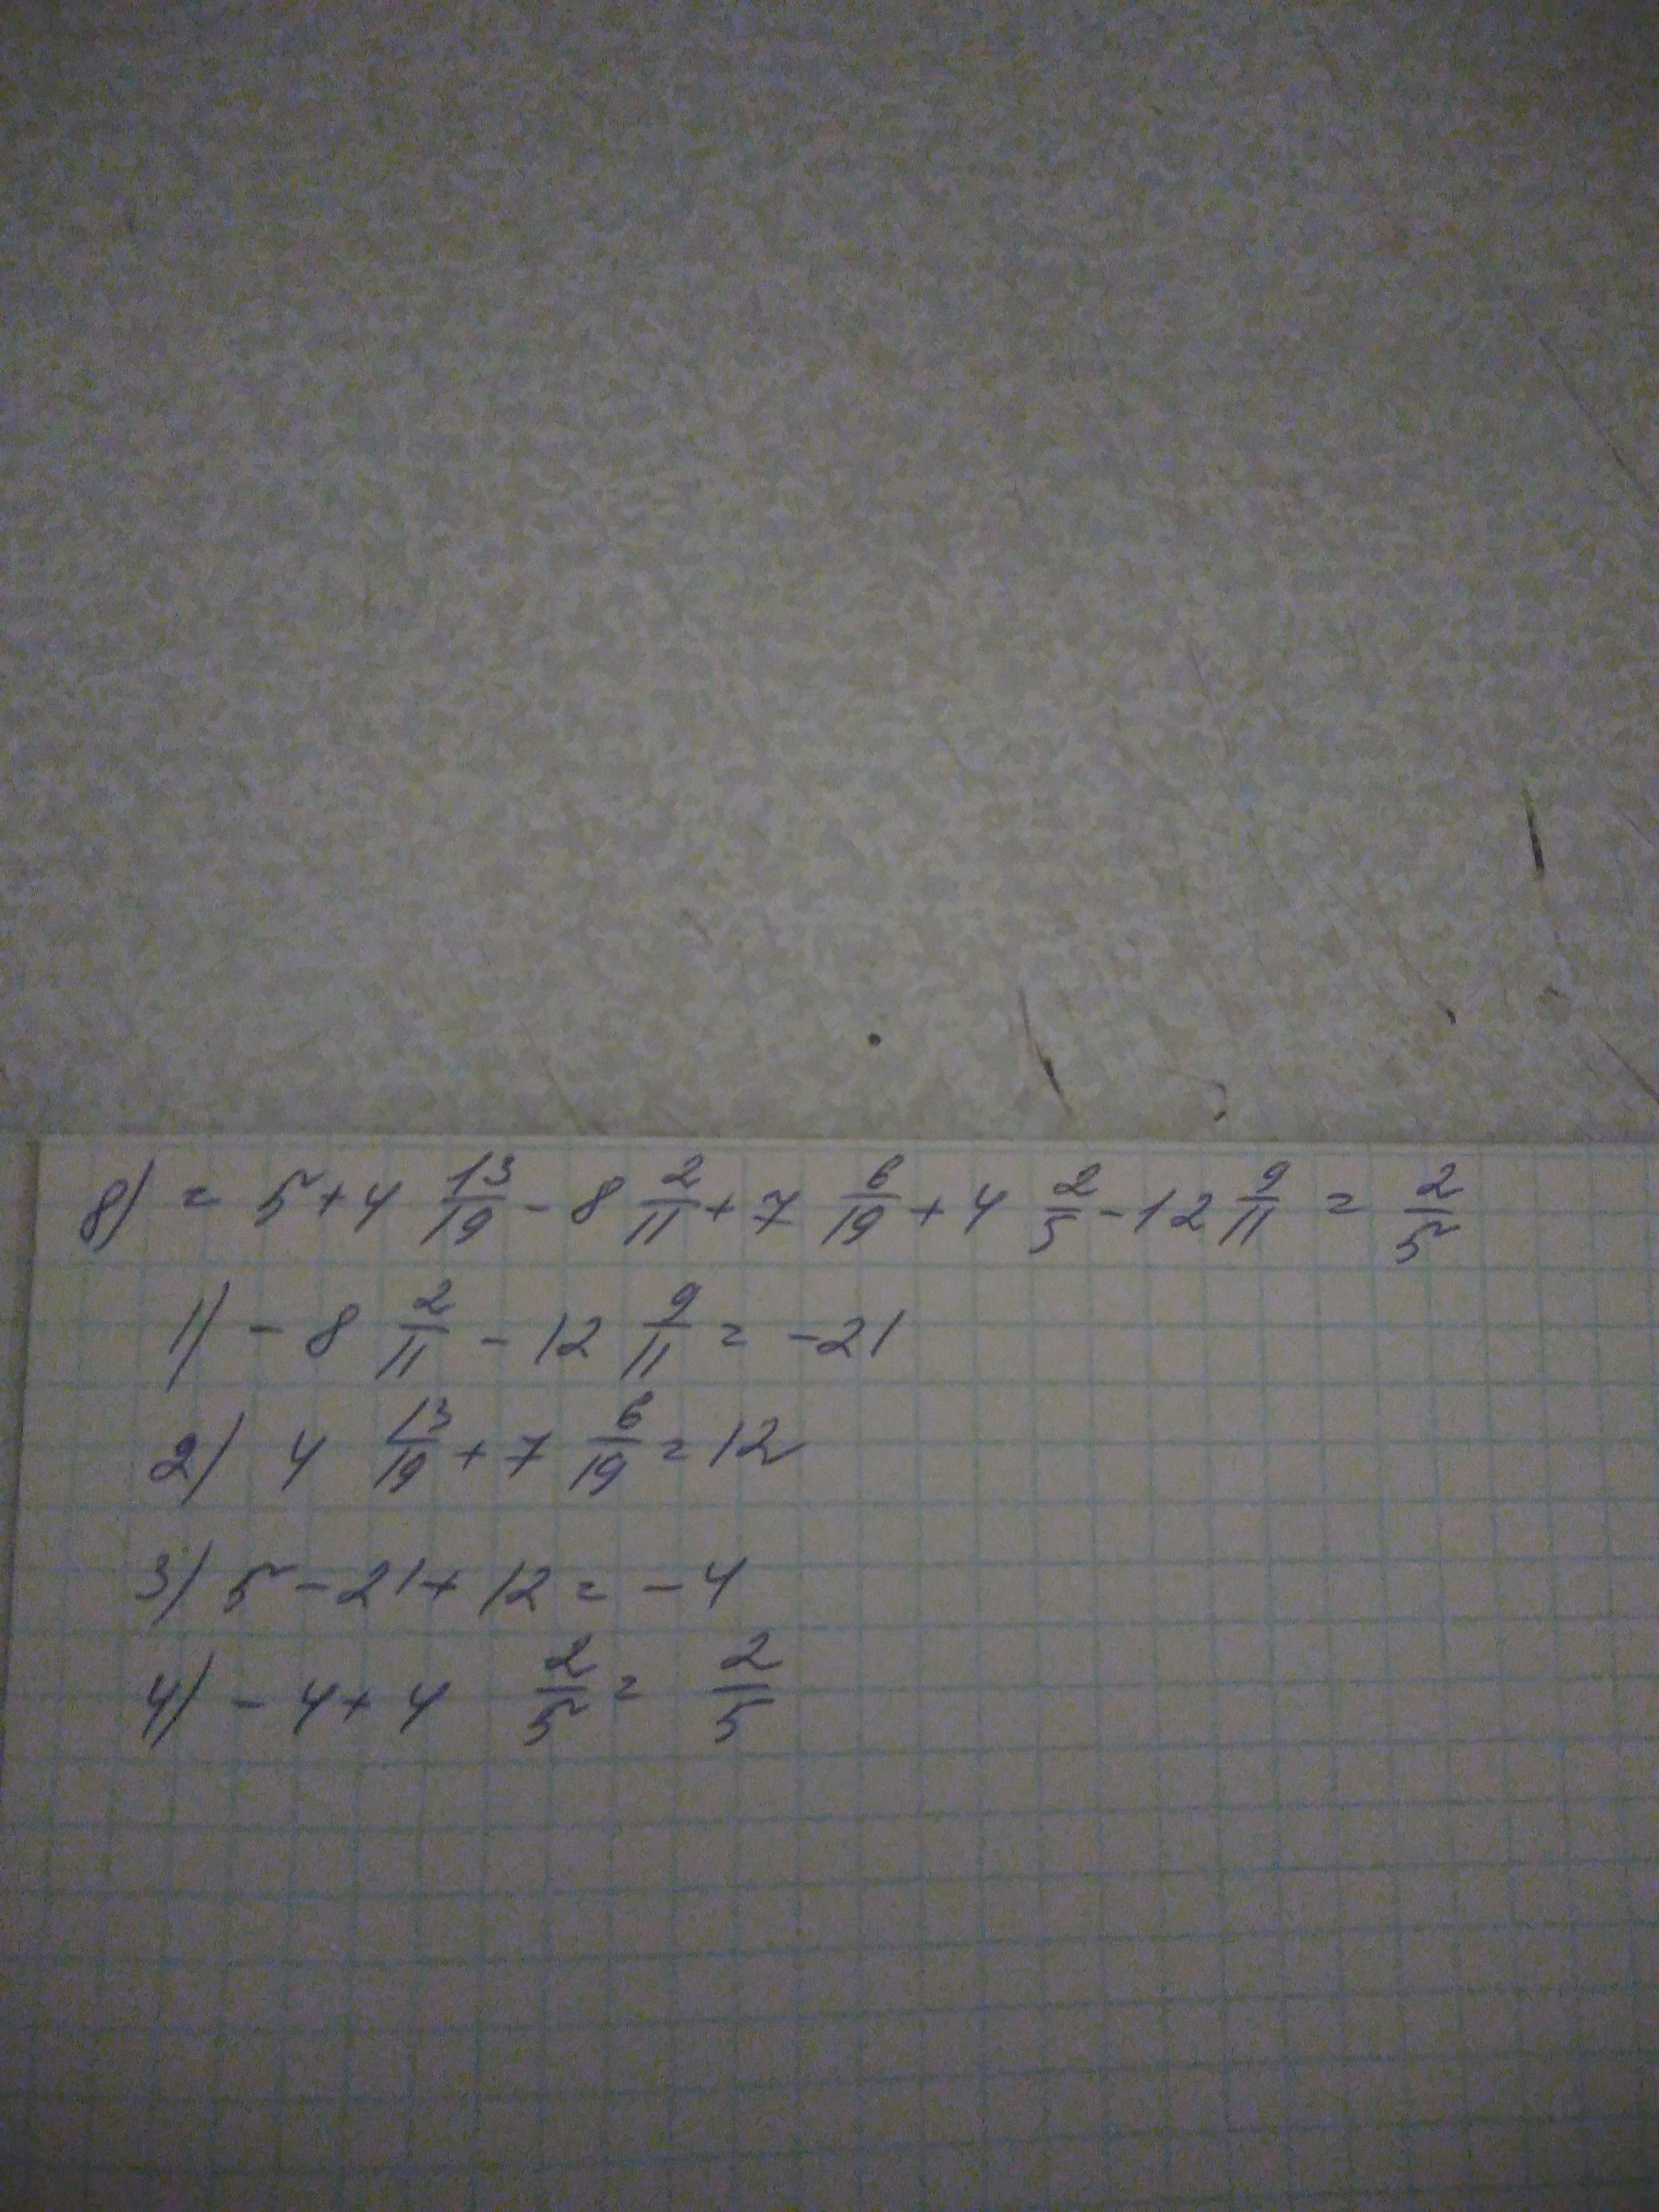 8) = 5 + 4 13/19 - 8 2/11 + 7 6/19 + 4 2/5 - 12 9/11 = 2/5
1) - 8 2/11 - 12 9/11 = -21
2) 4 13/19 + 7 6/19 = 12
3) 5 - 21 + 12 = - 4
4) - 4 + 4 2/5 = 2/5